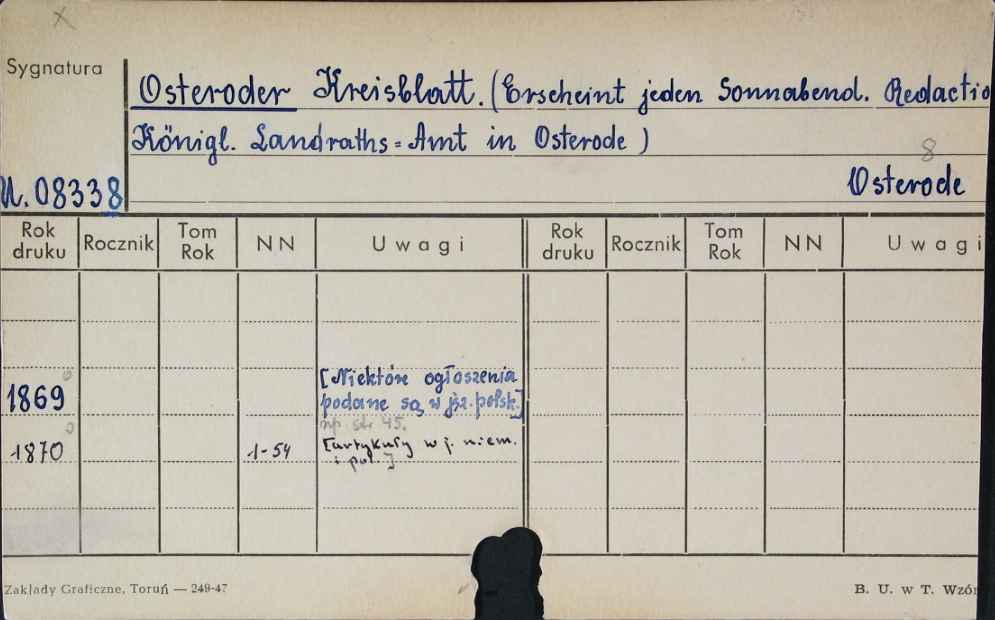 x
Sygnatura
Osteroder Kreisblatt. (Erscheint jeden Sonnabend. Redactio
Königl. Landraths=Amt in Osterode)
8
U. 08338
Osterode
Rok druku Rocznik Tom Rok NN Uwagi Rok druku Rocznik Tom Rok NN Uwagi
1869 [Niektóre ogłoszenia
podane są w jęz. polsk.]
np. str 45.
1870 1-54 [artykuły w j. niem.
i pol.]
Zakłady Graficzne, Toruń — 249-47
B. U. w T. Wzór